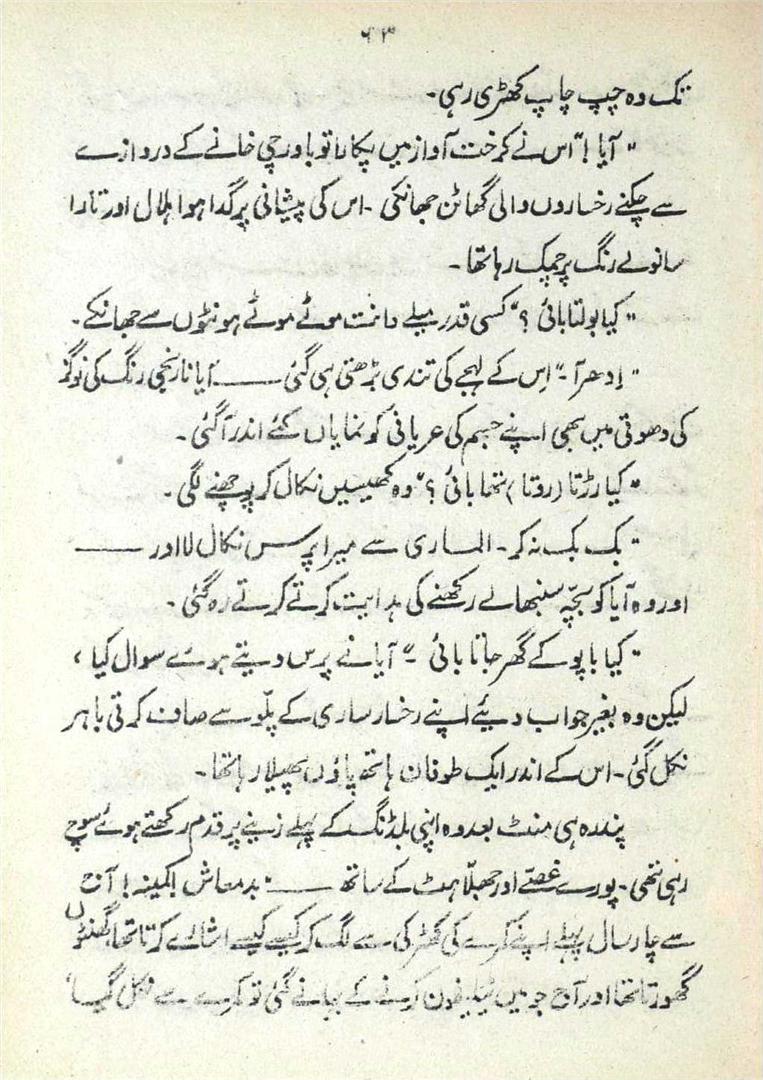 ۶۳
تک وہ چپ چاپ کھڑی رہی۔
"آیا!" اس نے کرخت آواز میں پکارا تو باورچی خانے کے دروازے
سے چکنے رخساروں والی گھاٹن جھانکی۔ اس کی پیشانی پر گدا ہوا ہلال اور تارا
سانولے رنگ پر چمک رہا تھا۔
"کیا بولتا بائی ؟" کسی قدر میلے دانت موٹے موٹے ہونٹوں سے جھانکے۔
"اِدھر آ۔" اِس کے لہجے کی تندی بڑھتی ہی گئی ——— آیا نارنجی رنگ کی نوگز
کی دھوتی میں بھی اپنے جسم کی عریانی کو نمایاں کئے اندر آ گئی۔
"کیا رڑتا (روتا) تھا بائی ؟" وہ کھیسیں نکال کر پوچھنے لگی۔
"بک بک نہ کر۔ الماری سے میرا پرس نکال لا اور ———
اور وہ آیا کو بچّہ سنبھالے رکھنے کی ہدایت کرتے کرتے رہ گئی۔
"کیا باپو کے گھر جاتا بائی۔" آیا نے پرس دیتے ہوئے سوال کیا،
لیکن وہ بغیر جواب دیئے اپنے رخسار ساری کے پلّو سے صاف کرتی باہر
نکل گئی۔ اس کے اندر ایک طوفان ہاتھ پاؤں پھیلا رہا تھا۔
پندرہ ہی منٹ بعد وہ اپنی بلڈنگ کے پہلے زینے پر قدم رکھتے ہوئے سوچ
رہی تھی۔ پورے غصّے اور جھلّاہٹ کے ساتھ ——— "بدمعاش! کمینہ! آج
سے چار سال پہلے اپنے کمرے کی کھڑکی سے لگ کر کیسے کیسے اشارے کرتا تھا، گھنٹوں
گھورتا تھا اور آج جو میں ٹیلیفون کرنے کے بہانے گئی تو کمرے سے نکل گیا"